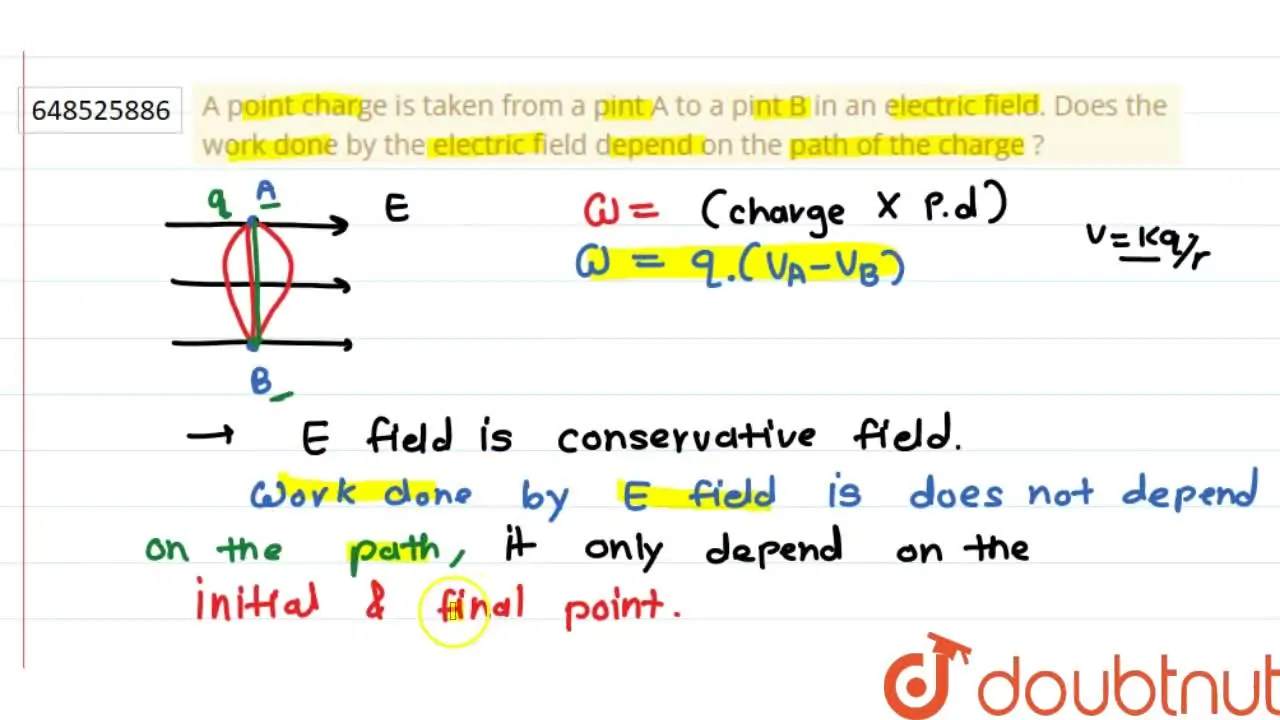 648525886
A point charge is taken from a pint A to a pint B in an electric field. Does the
work done by the electric field depend on the path of the charge ?
q A
E
ω = (charge X P.d)
V = Kq/r
ω = q.(VA-VB)
B
→ E field is conservative field.
Work done by E field is does not depend
on the path, it only depend on the
initial & final point.
doubtnut